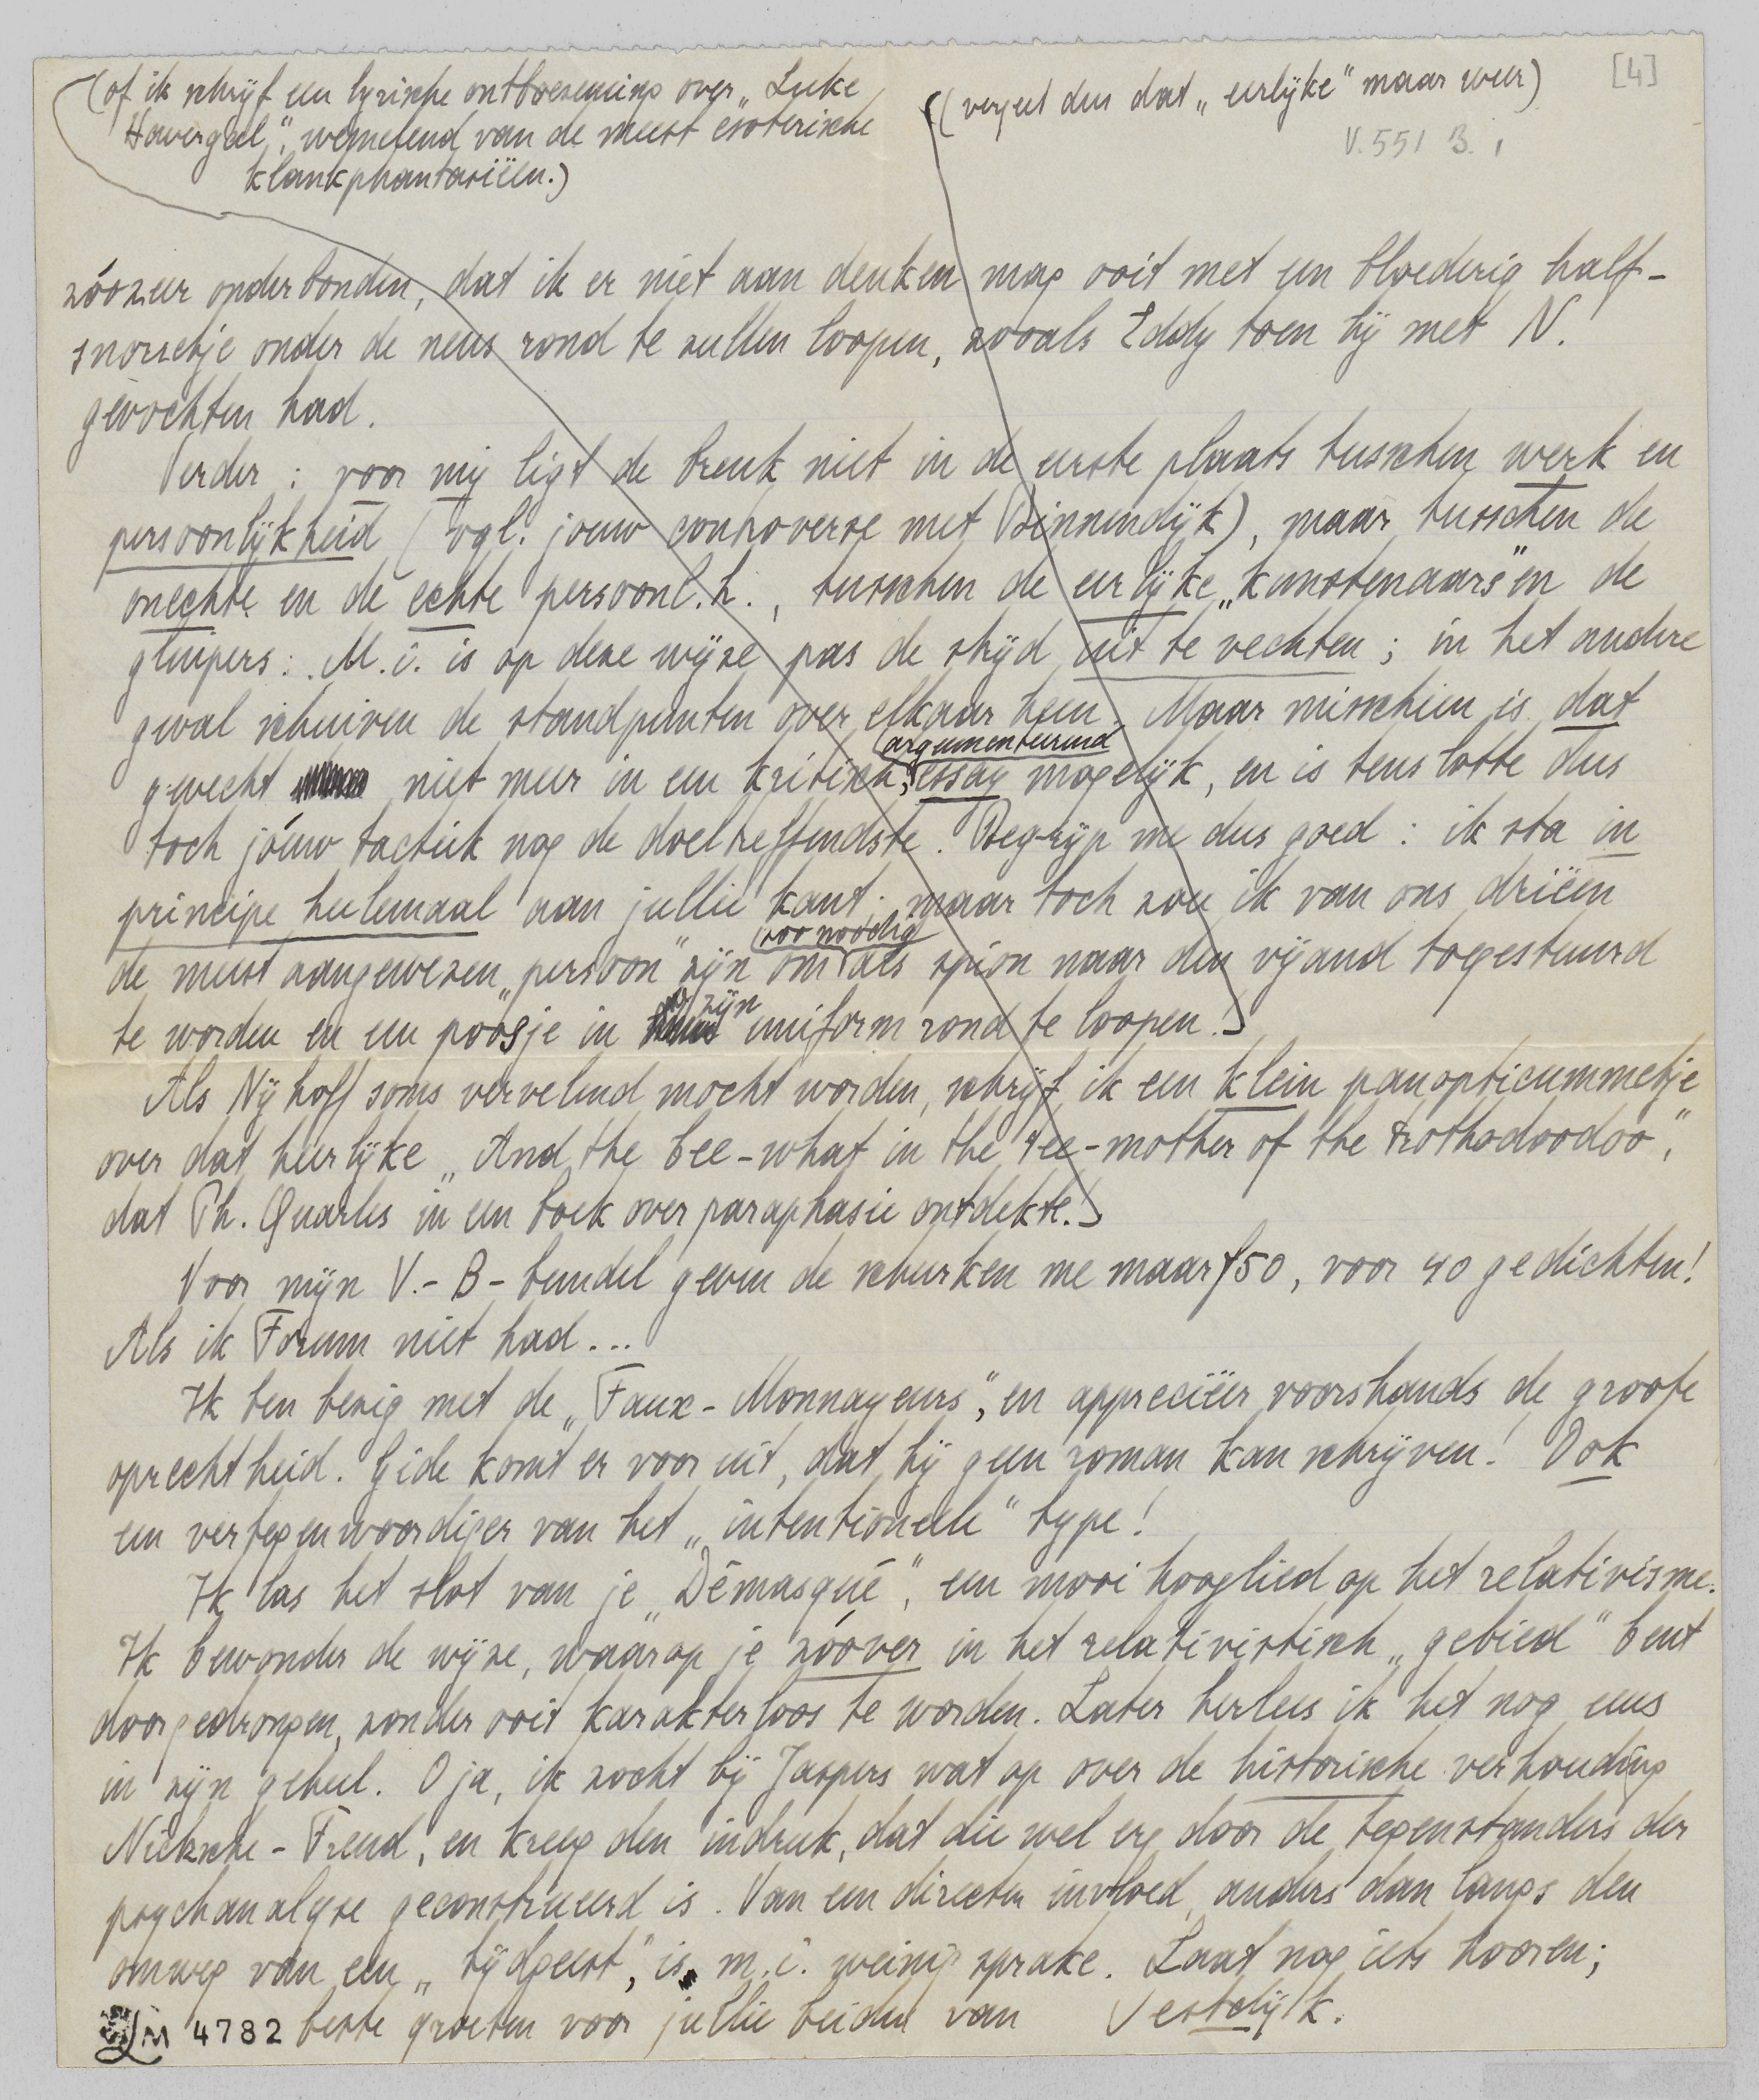 (of ik schrijf een lyrische ontboezeming over „Luke
Havergal", wemelend van de meest esoterische
klankphantasiëën.)
((vergeet dus dat „eerlijke" maar weer)
[4]
V. 551 B. 1
zóózeer onderbonden, dat ik er niet aan denken mag ooit met een bloederig half-
snorretje onder de neus rond te zullen loopen, zooals Eddy toen hij met N.
gevochten had.
Verder: voor mij ligt de breuk niet in de eerste plaats tusschen werk en
persoonlijkheid (vgl. jouw controverse met Binnendijk), maar tusschen de
onechte en de echte persoonl.h., tusschen de eerlijke „kunstenaars" en de
gluipers. M.i. is op deze wijze pas de strijd uit te vechten; in het andere
geval schuiven de standpunten over elkaar heen. Maar misschien is dat
argumenteerend
gevecht niet meer in een kritisch, essay mogelijk, en is tenslotte dus
toch jóuw tactiek nog de doeltreffendste. Begrijp me dus goed: ik sta in
principe heelemaal aan jullie kant; maar toch zou ik van ons drieën
zoo noodig
de meest aangewezen „persoon" zijn om als spion naar den vijand toegestuurd
zijn
te worden en een poosje in uniform rond te loopen!)
Als Nijhoff soms vervelend mocht worden, schrijf ik een klein panopticummetje
over dat heerlijke „And the bee-what in the tee-mother of the trothodoodoo",
dat Ph. Quarles in een boek over paraphasie ontdekte.)
Voor mijn V.-B-bundel geven de schurken me maar f50, voor 40 gedichten!
Als ik Forum niet had...
Ik ben bezig met de „Faux-Monnayeurs", en apprecieër voorshands de groote
oprechtheid. Gide komt er voor uit, dat hij geen roman kan schrijven! Ook
een vertegenwoordiger van het „intentioneele" type!
Ik las het slot van je „Démasqué", een mooi hooglied op het relativisme.
Ik bewonder de wijze, waarop je zóóver in het relativistisch „gebied" bent
doorgedrongen, zonder ooit karakterloos te worden. Later herlees ik het nog eens
in zijn geheel. O ja, ik zocht bij Jaspers wat op over de historische verhouding
Nietzsche-Freud, en kreeg den indruk, dat die wel erg door de tegenstanders der
psychanalyse geconstrueerd is. Van een directen invloed, anders dan langs den
omweg van een „tijdgeest", is m.i. weinig sprake. Laat nog iets hooren;
LM 4782 beste groeten voor jullie beiden van Vestdijk.